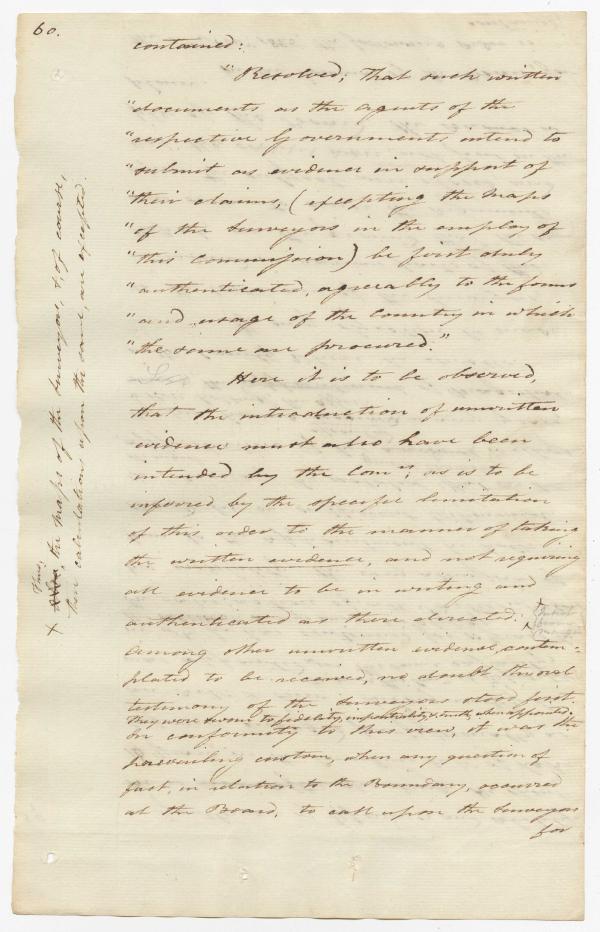 60.
contained:
"Resolved; That such written
"documents as the agents of the
"respective Governments intend to
"submit as evidence in support of
"their claims, (excepting the maps
"of the Surveyors in the employ of
"this Commission) be first duly
"authenticated, agreeably to the forms
"and usage of the Country in which
"the same are procured."
Here it is to be observed,
that the introduction of unwritten
evidence must also have been
intended by the Comrs, as is to be
inferred by the specific limitation
of this order to the manner of taking
the written evidence, and not requiring
all evidence to be in writing and
authenticated as there directed.
Among other unwritten evidence, contem-
plated to be received, no doubt the oral
testimony of the Surveyors stood first.
They were sworn to fidelity, impartiality & truth, when appointed.
In conformity to this view, it was the
prevailing custom, when any question of
fact, in relation to the Boundary, occurred
at the Board, to call upon the Surveyors
for
x Thus, the maps of the Surveyors, & of course,
their calculations upon the same, are excepted.